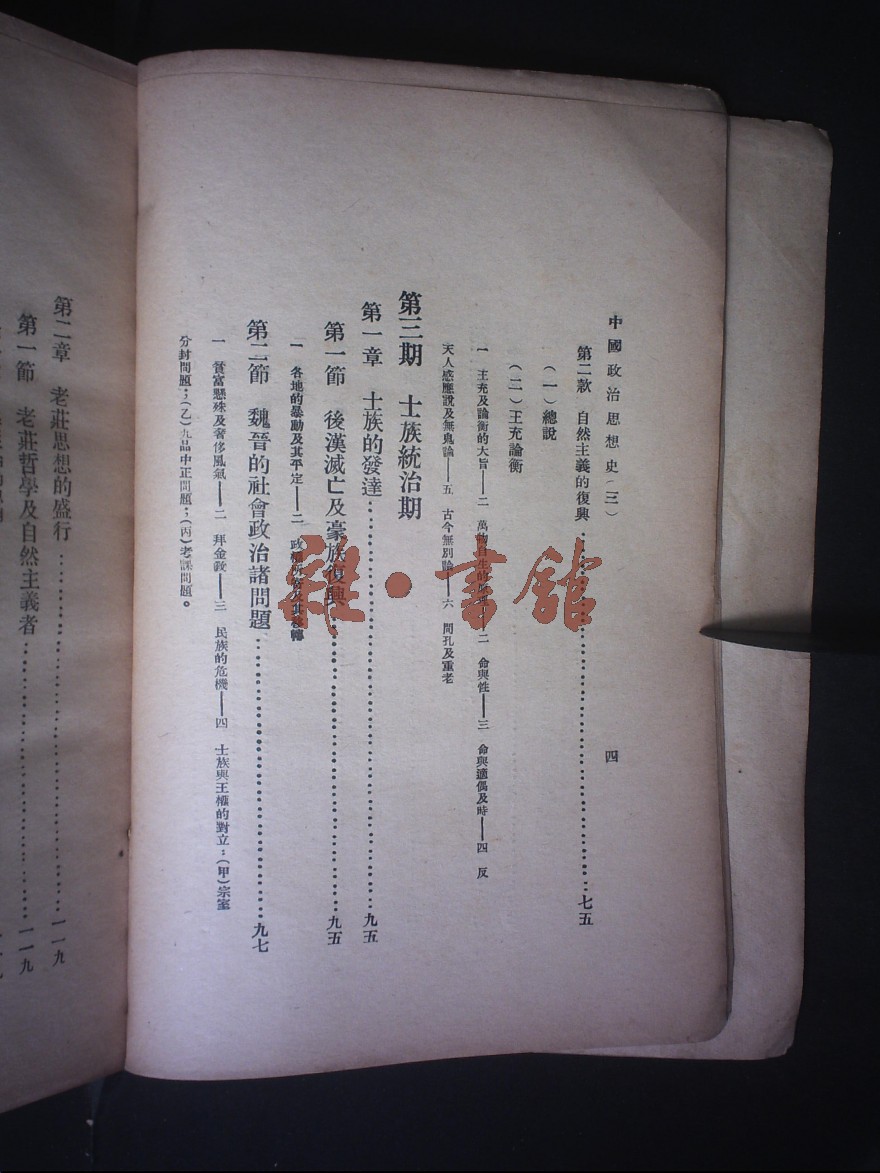 中國政治思想史（三）
四
第二款　自然主義的復興……七五
（一）總說
（二）王充論衡
一　王充及論衡的大旨——二　萬物自生的原理——二　命與性——三　命與適偶及時——四　反
天人感應說及無鬼論——五　古今無別論——六　問孔及重老
第三期　士族統治期
第一章　士族的發達……九五
第一節　後漢滅亡及豪族復興……九五
一　各地的暴動及其平定——二　政權所在及其移轉
第二節　魏晉的社會政治諸問題……九七
一　貧富懸殊及奢侈風氣——二　拜金教——三　民族的危機——四　士族與王權的對立：（甲）宗室
分封問題；（乙）九品中正問題；（丙）考課問題。
第二章　老莊思想的盛行……一一九
第一節　老莊哲學及自然主義者……一一九
雜·書館